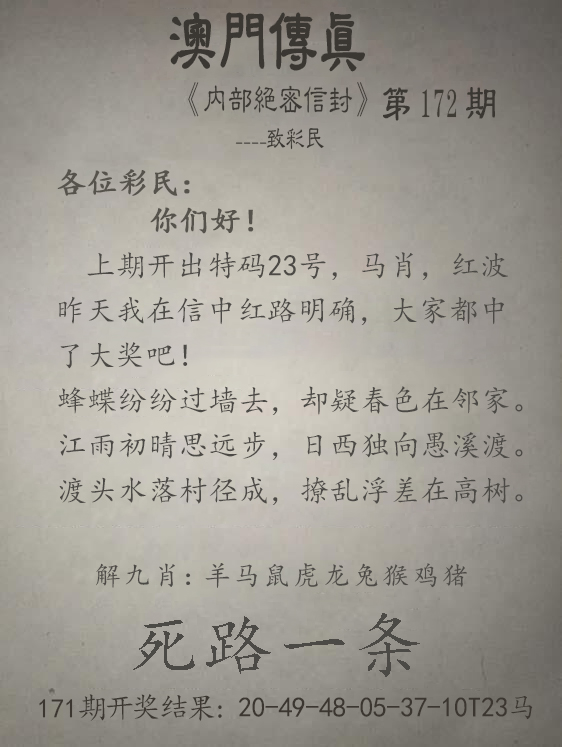 澳門傳眞
《内部絕密信封》第172期
----致彩民
各位彩民：
你们好！
上期开出特码23号，马肖，红波
昨天我在信中红路明确，大家都中
了大奖吧！
蜂蝶纷纷过墙去，却疑春色在邻家。
江雨初晴思远步，日西独向愚溪渡。
渡头水落村径成，撩乱浮差在高树。
解九肖：羊马鼠虎龙兔猴鸡猪
死路一条
171期开奖结果：20-49-48-05-37-10T23马